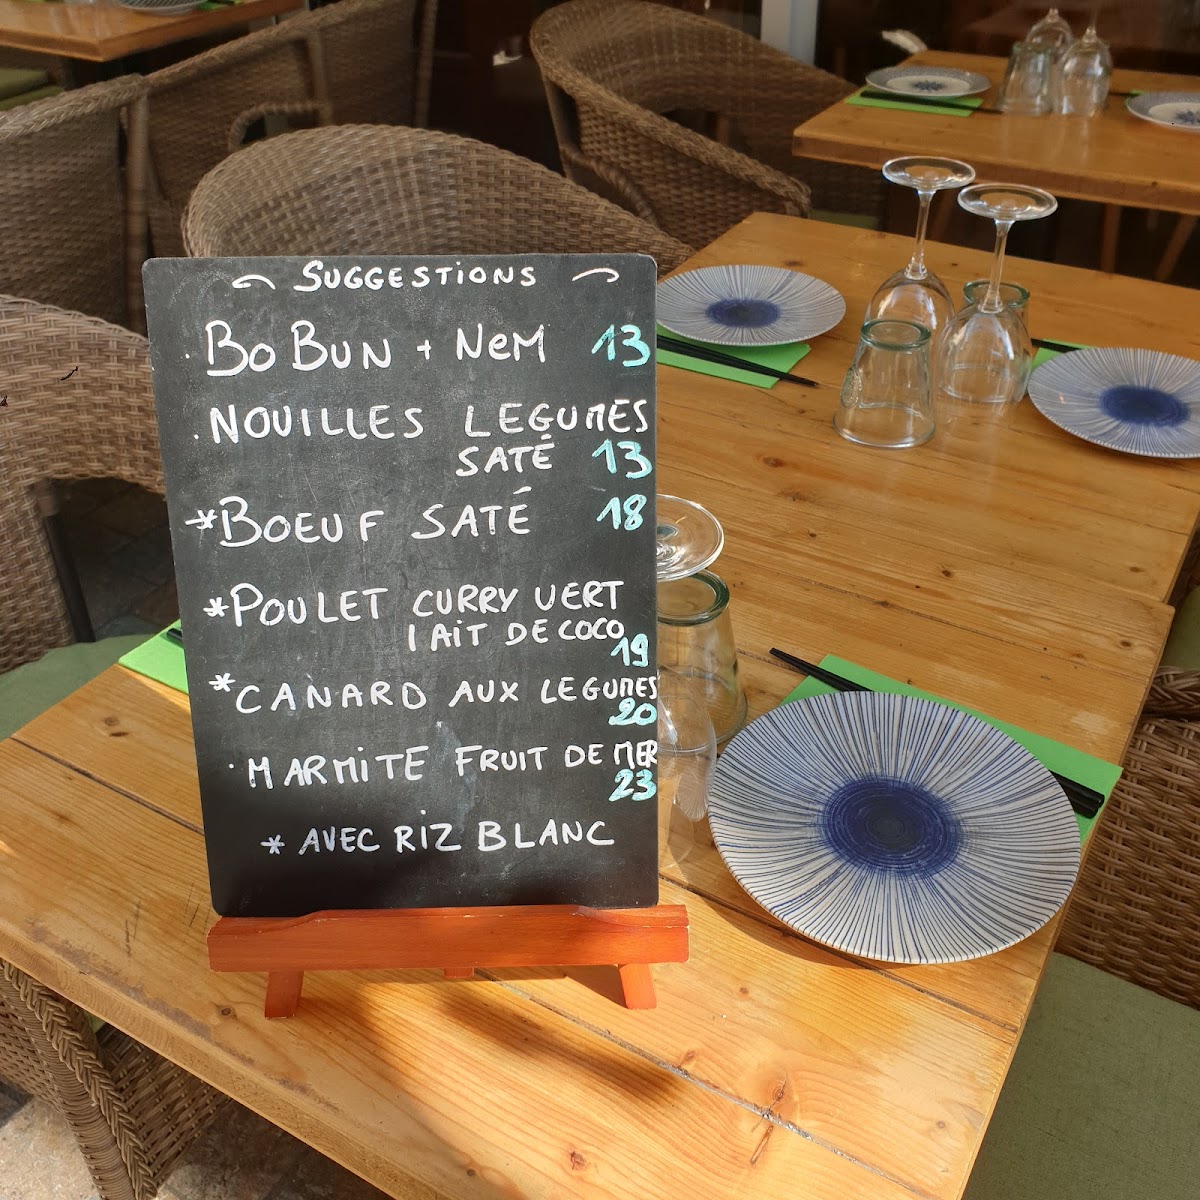 SUGGESTIONS
. BO BUN + NEM 13
. NOUILLES LEGUMES
SATÉ 13
* BOEUF SATÉ 18
* POULET CURRY VERT
LAIT DE COCO
19
* CANARD AUX LEGUMES
20
. MARMITE FRUIT DE MER
23
* AVEC RIZ BLANC